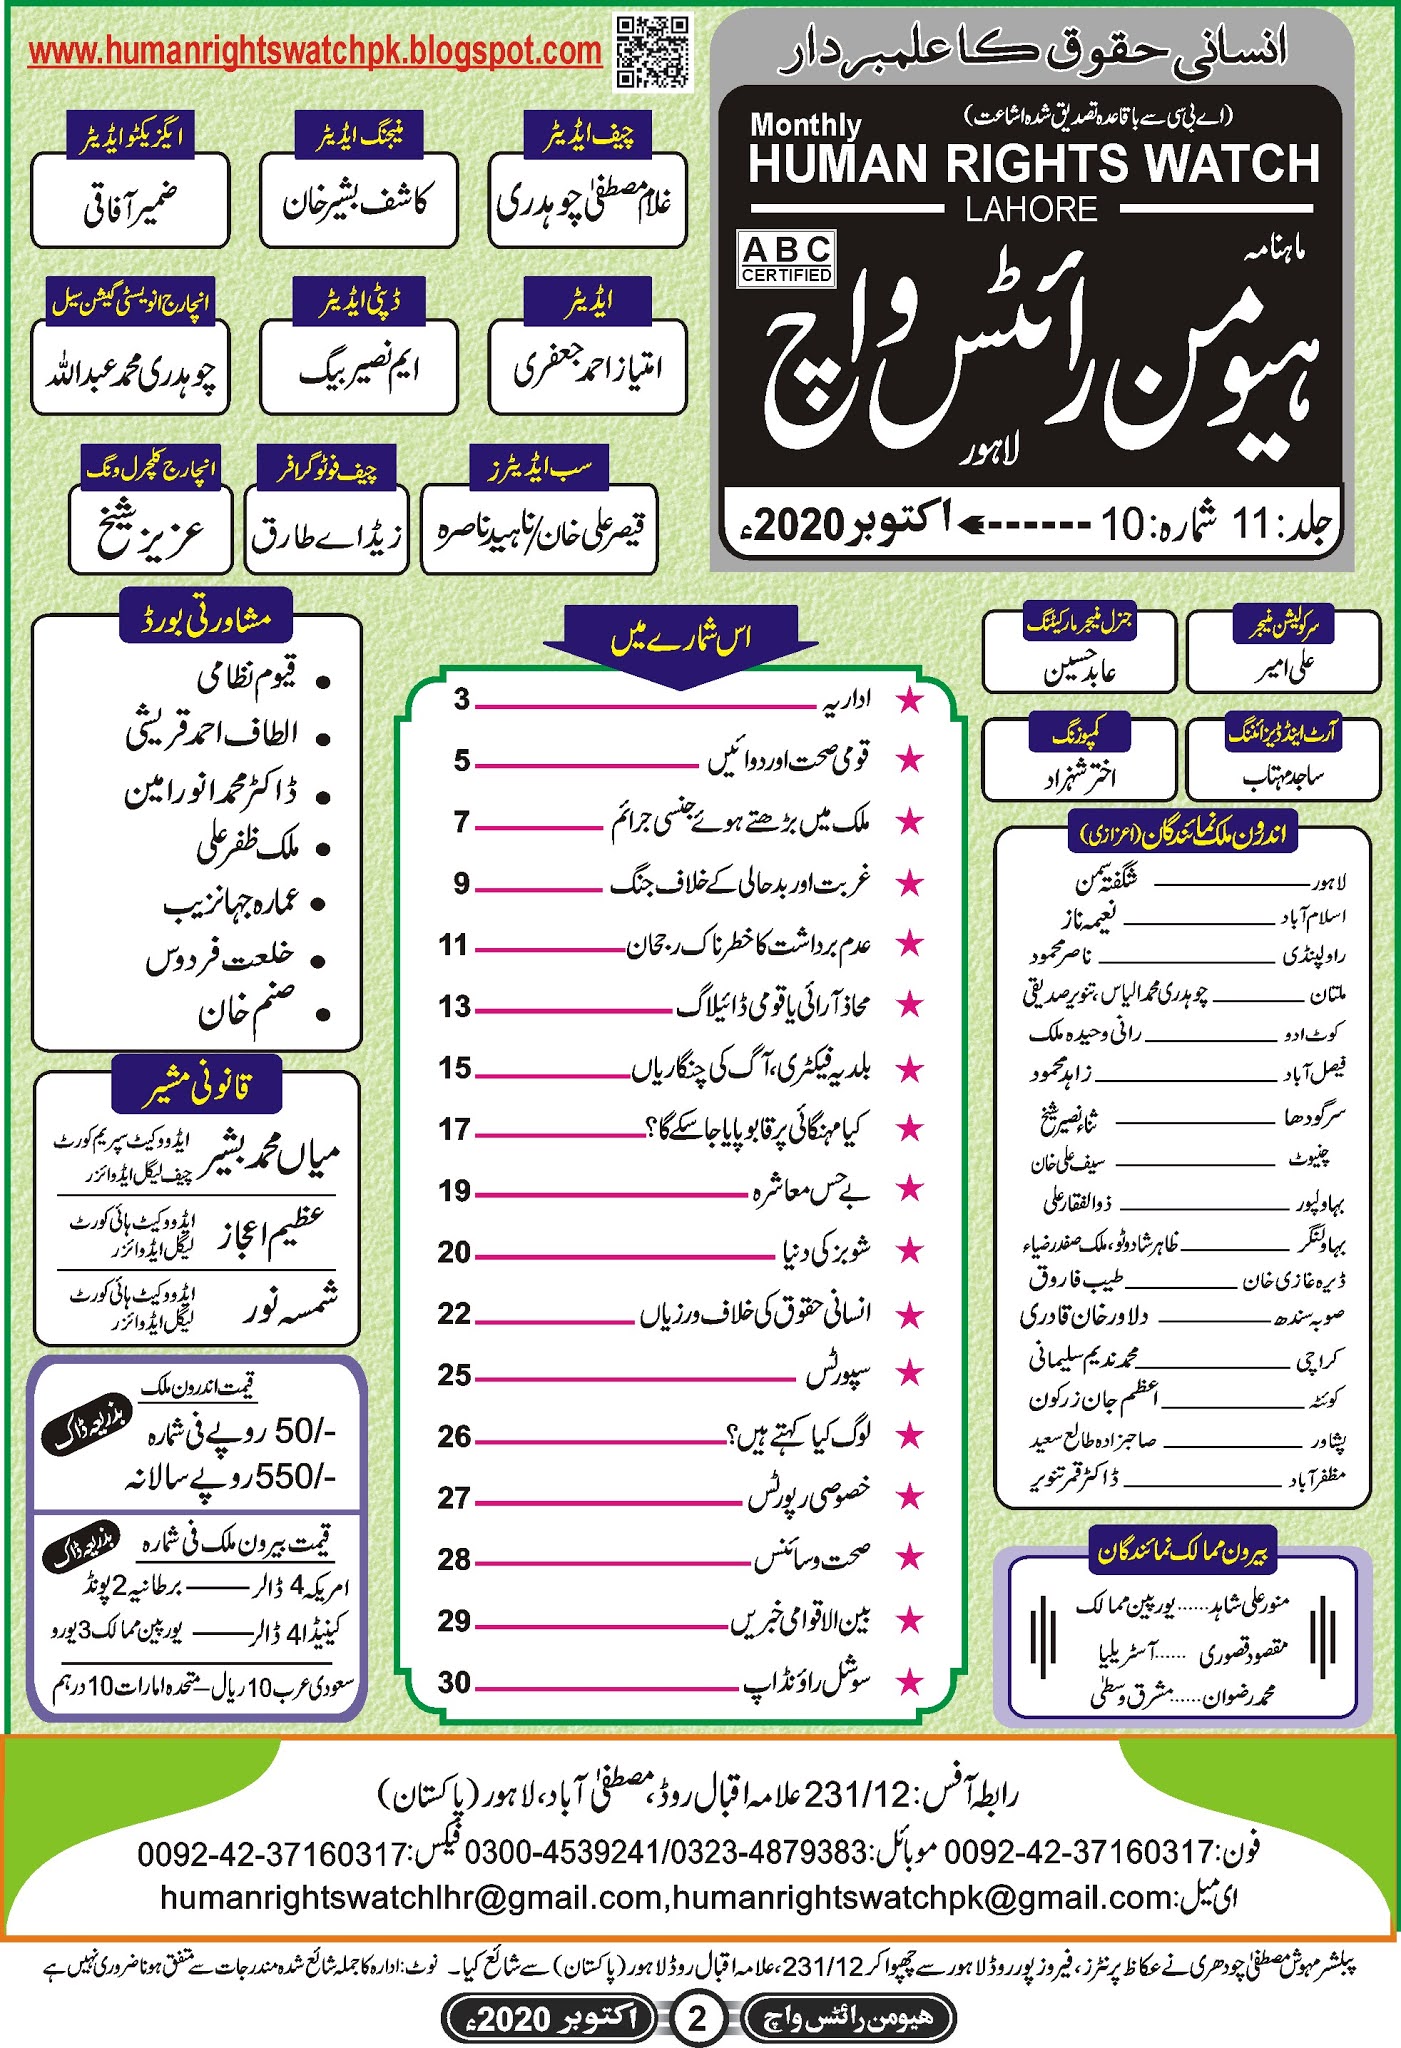 www.humanrightswatchpk.blogspot.com
انسانی حقوق کا علمبردار
(اے بی سی سے باقاعدہ تصدیق شدہ اشاعت)
Monthly
HUMAN RIGHTS WATCH
LAHORE
ABC
CERTIFIED
ماہنامہ
ہیومن رائٹس واچ
لاہور
جلد: 11 شمارہ: 10 ------ اکتوبر 2020ء
چیف ایڈیٹر
غلام مصطفیٰ چوہدری
منیجنگ ایڈیٹر
کاشف بشیر خان
ایگزیکٹو ایڈیٹر
ضمیر آفاقی
ایڈیٹر
امتیاز احمد جعفری
ڈپٹی ایڈیٹر
ایم نصیر بیگ
انچارج انویسٹی گیشن سیل
چوہدری محمد عبداللہ
سب ایڈیٹرز
قیصر علی خان/ناہید ناصرہ
چیف فوٹو گرافر
زیڈ اے طارق
انچارج کلچرل ونگ
عزیز شیخ
سرکولیشن منیجر
علی امیر
جنرل منیجر مارکیٹنگ
عابد حسین
آرٹ اینڈ ڈیزائننگ
ساجد مہتاب
کمپوزنگ
اختر شہزاد
اندرون ملک نمائندگان (اعزازی)
لاہور ____ شگفتہ سمن
اسلام آباد ____ نعیمہ ناز
راولپنڈی ____ ناصر محمود
ملتان ____ چوہدری محمد الیاس، تنویر صدیقی
کوٹ ادو ____ رانی وحیدہ ملک
فیصل آباد ____ زاہد محمود
سرگودھا ____ ثناء نصیر شیخ
چنیوٹ ____ سیف علی خان
بہاولپور ____ ذوالفقار علی
بہاولنگر ____ طاہر شاد وٹو، ملک صفدر ضیاء
ڈیرہ غازی خان ____ طیب فاروق
صوبہ سندھ ____ دلاور خان قادری
کراچی ____ محمد ندیم سلیمانی
کوئٹہ ____ اعظم جان زرکون
پشاور ____ صاحبزادہ طالع سعید
مظفرآباد ____ ڈاکٹر قمر تنویر
بیرون ممالک نمائندگان
منور علی شاہد......یورپین ممالک
مقصود قصوری......آسٹریلیا
محمد رضوان.....مشرق وسطیٰ
اس شمارے میں
اداریہ ____ 3
قومی صحت اور دوائیں ____ 5
ملک میں بڑھتے ہوئے جنسی جرائم ____ 7
غربت اور بدحالی کے خلاف جنگ ____ 9
عدم برداشت کا خطرناک رجحان ____ 11
محاذ آرائی یا قومی ڈائیلاگ ____ 13
بلدیہ فیکٹری، آگ کی چنگاریاں ____ 15
کیا مہنگائی پر قابو پایا جا سکے گا؟ ____ 17
بے حس معاشرہ ____ 19
شوبز کی دنیا ____ 20
انسانی حقوق کی خلاف ورزیاں ____ 22
سپورٹس ____ 25
لوگ کیا کہتے ہیں؟ ____ 26
خصوصی رپورٹس ____ 27
صحت و سائنس ____ 28
بین الاقوامی خبریں ____ 29
سوشل راؤنڈ اپ ____ 30
مشاورتی بورڈ
• قیوم نظامی
• الطاف احمد قریشی
• ڈاکٹر محمد انور امین
• ملک ظفر علی
• عمارہ جہانزیب
• خلعت فردوس
• صنم خان
قانونی مشیر
میاں محمد بشیر ایڈووکیٹ سپریم کورٹ
چیف لیگل ایڈوائزر
عظیم اعجاز ایڈووکیٹ ہائی کورٹ
لیگل ایڈوائزر
شمسہ نور ایڈووکیٹ ہائی کورٹ
لیگل ایڈوائزر
قیمت اندرون ملک
بذریعہ ڈاک
50/- روپے فی شمارہ
550/- روپے سالانہ
قیمت بیرون ملک فی شمارہ
بذریعہ ڈاک
امریکہ 4 ڈالر ____ برطانیہ 2 پونڈ
کینیڈا 4 ڈالر ____ یورپین ممالک 3 یورو
سعودی عرب 10 ریال – متحدہ امارات 10 درہم
رابطہ آفس: 231/12 علامہ اقبال روڈ، مصطفیٰ آباد، لاہور (پاکستان)
فون: 0092-42-37160317 موبائل: 0300-4539241/0323-4879383 فیکس: 0092-42-37160317
ای میل: humanrightswatchlhr@gmail.com,humanrightswatchpk@gmail.com
پبلشر مہوش مصطفیٰ چودھری نے عکاظ پرنٹرز، فیروز پور روڈ لاہور سے چھپوا کر 231/12، علامہ اقبال روڈ لاہور (پاکستان) سے شائع کیا۔ نوٹ: ادارہ کا جملہ شائع شدہ مندرجات سے متفق ہونا ضروری نہیں ہے
ہیومن رائٹس واچ 2 اکتوبر 2020ء